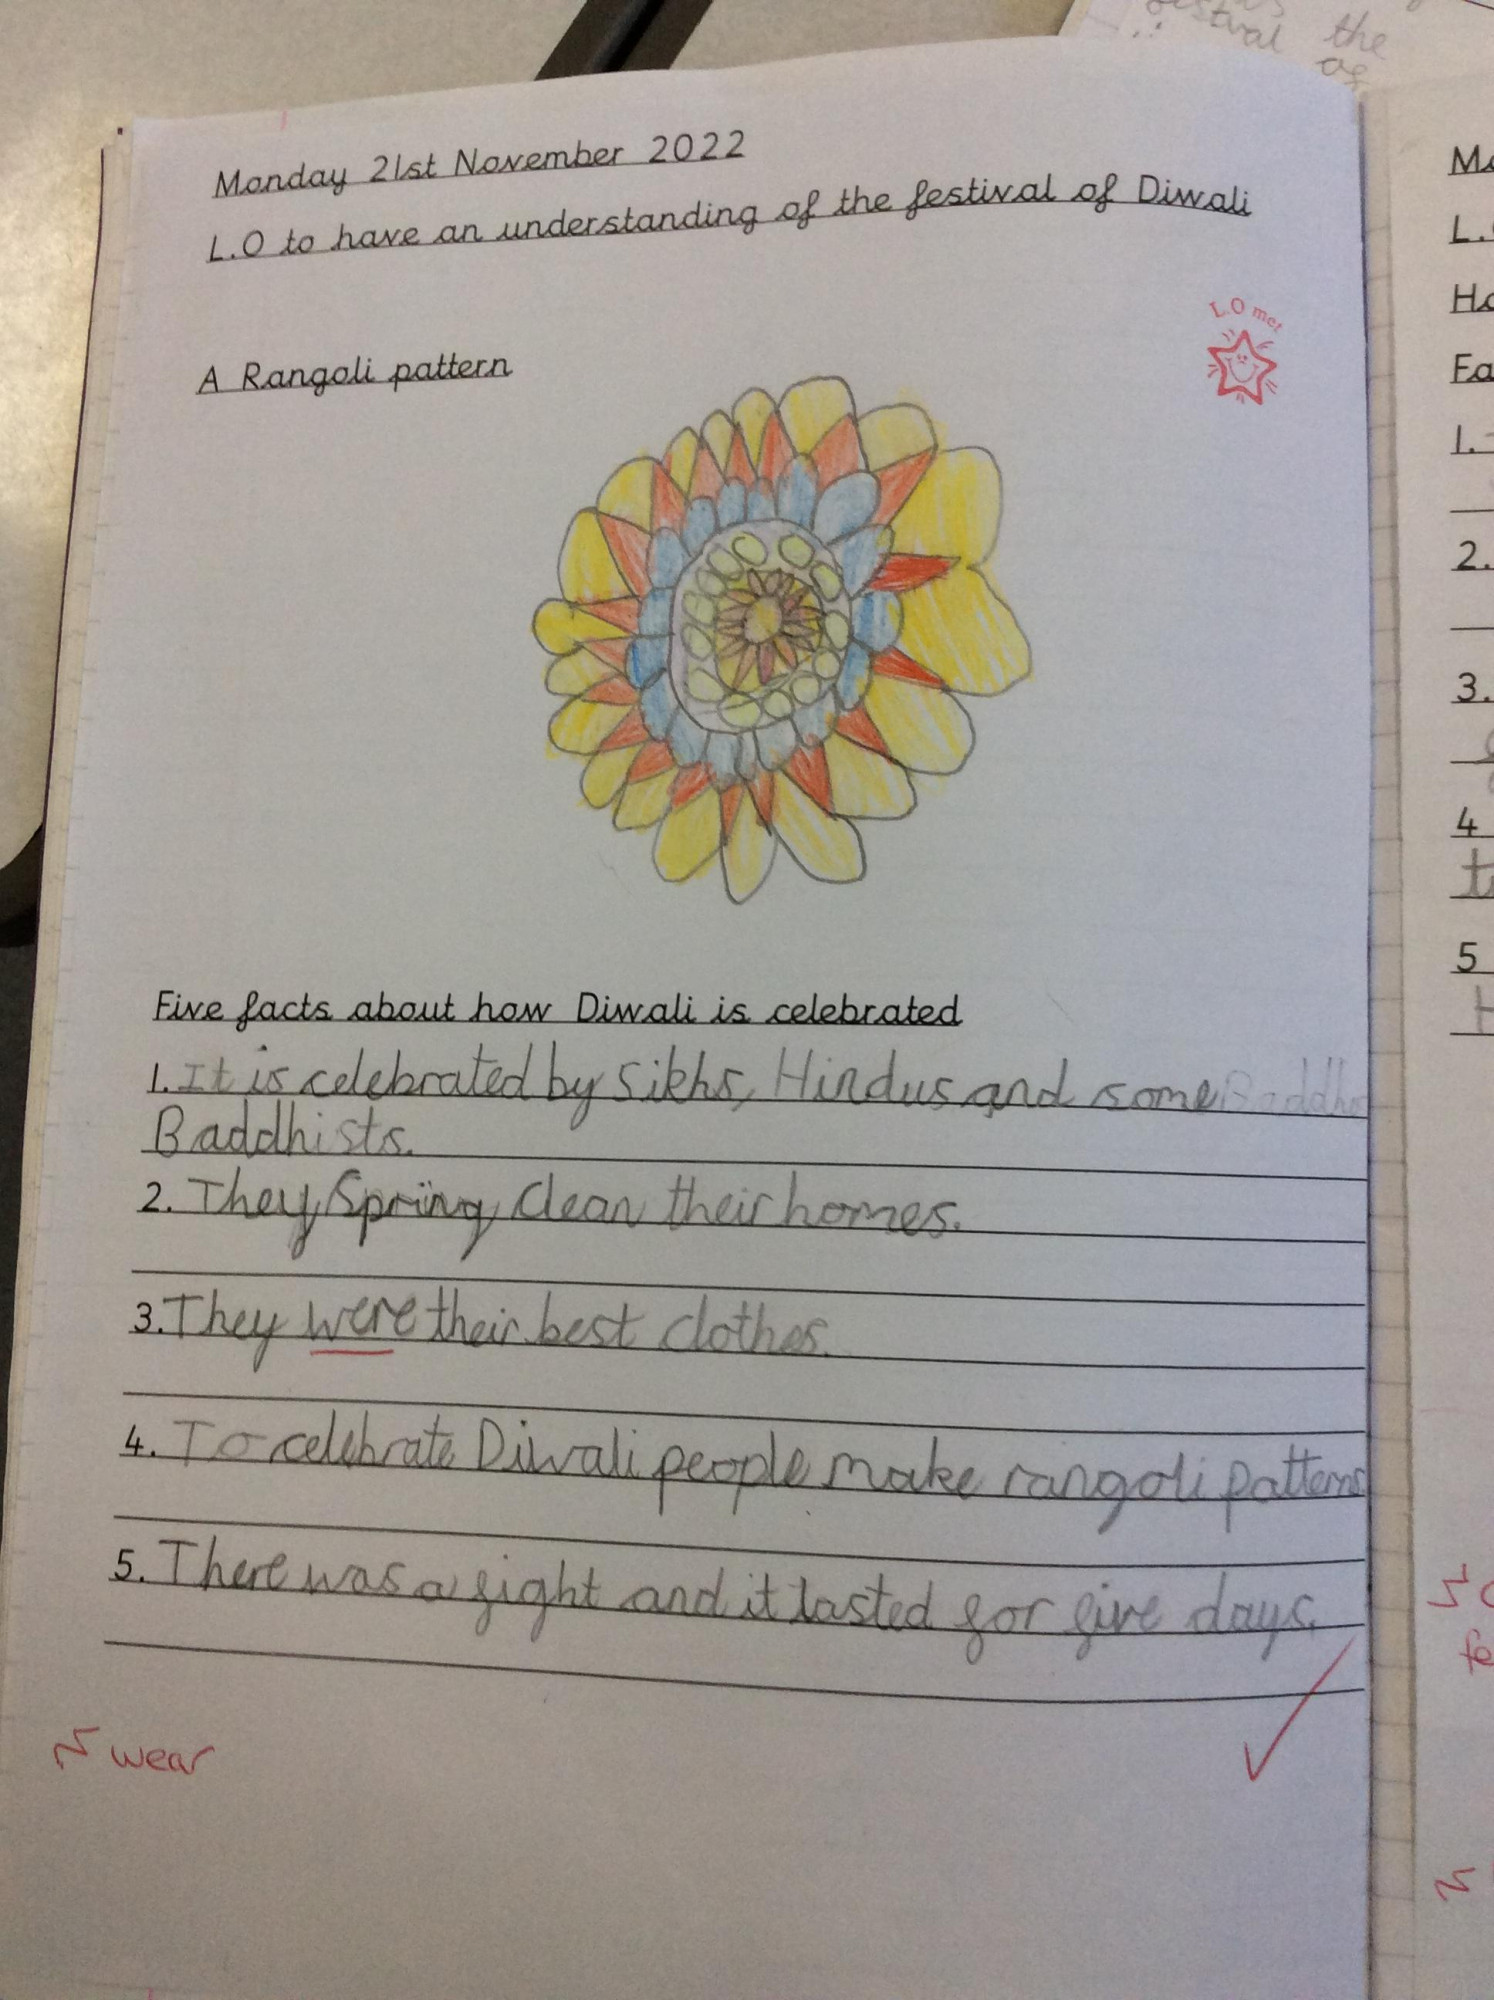 the
of
Monday 21st November 2022
L.O to have an understanding of the festival of Diwali
L.O met
A Rangoli pattern
Five facts about how Diwali is celebrated
1. It is celebrated by Sikhs, Hindus and some Baddho
Baddhists.
2. They Spring Clean their homes.
3. They were their best clothes.
4. To celebrate Diwali people make rangoli patterns
5. There was a fight and it lasted for five days.
wear
Mo
L.
Ho
Fa
1.
2.
3.
4
5
H
fe